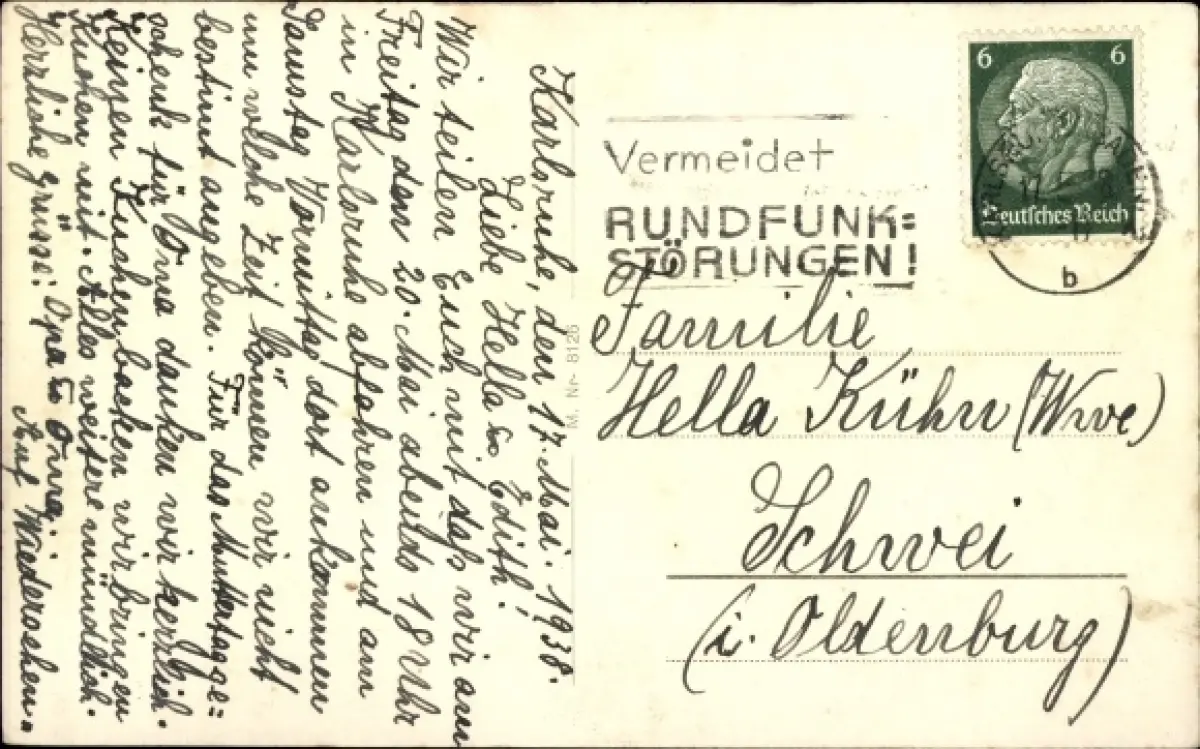 Karlsruhe, den 17. Mai. 1938.
Liebe Hella u. Edith!
Wir teilen Euch mit daß wir am
Freitag den 20. Mai abends 18 Uhr
in Karlsruhe abfahren und am
Samstag Vormittag dort ankommen
um welche Zeit können wir nicht
bestimt angeben. Für das Muttertagge=
schenk für Oma danken wir herzlich.
Keinen Kuchen backen wir bringen
Kuchen mit. Alles weitere mündlich.
Herzliche Grüsse! Opa u. Oma.
Auf Wiedersehen.
M. Nr. 8126
6 6
Deutsches Reich
17
b
Vermeidet
RUNDFUNK=
STÖRUNGEN!
Familie
Hella Kühn (Wwe)
Schwei
(i. Oldenburg)